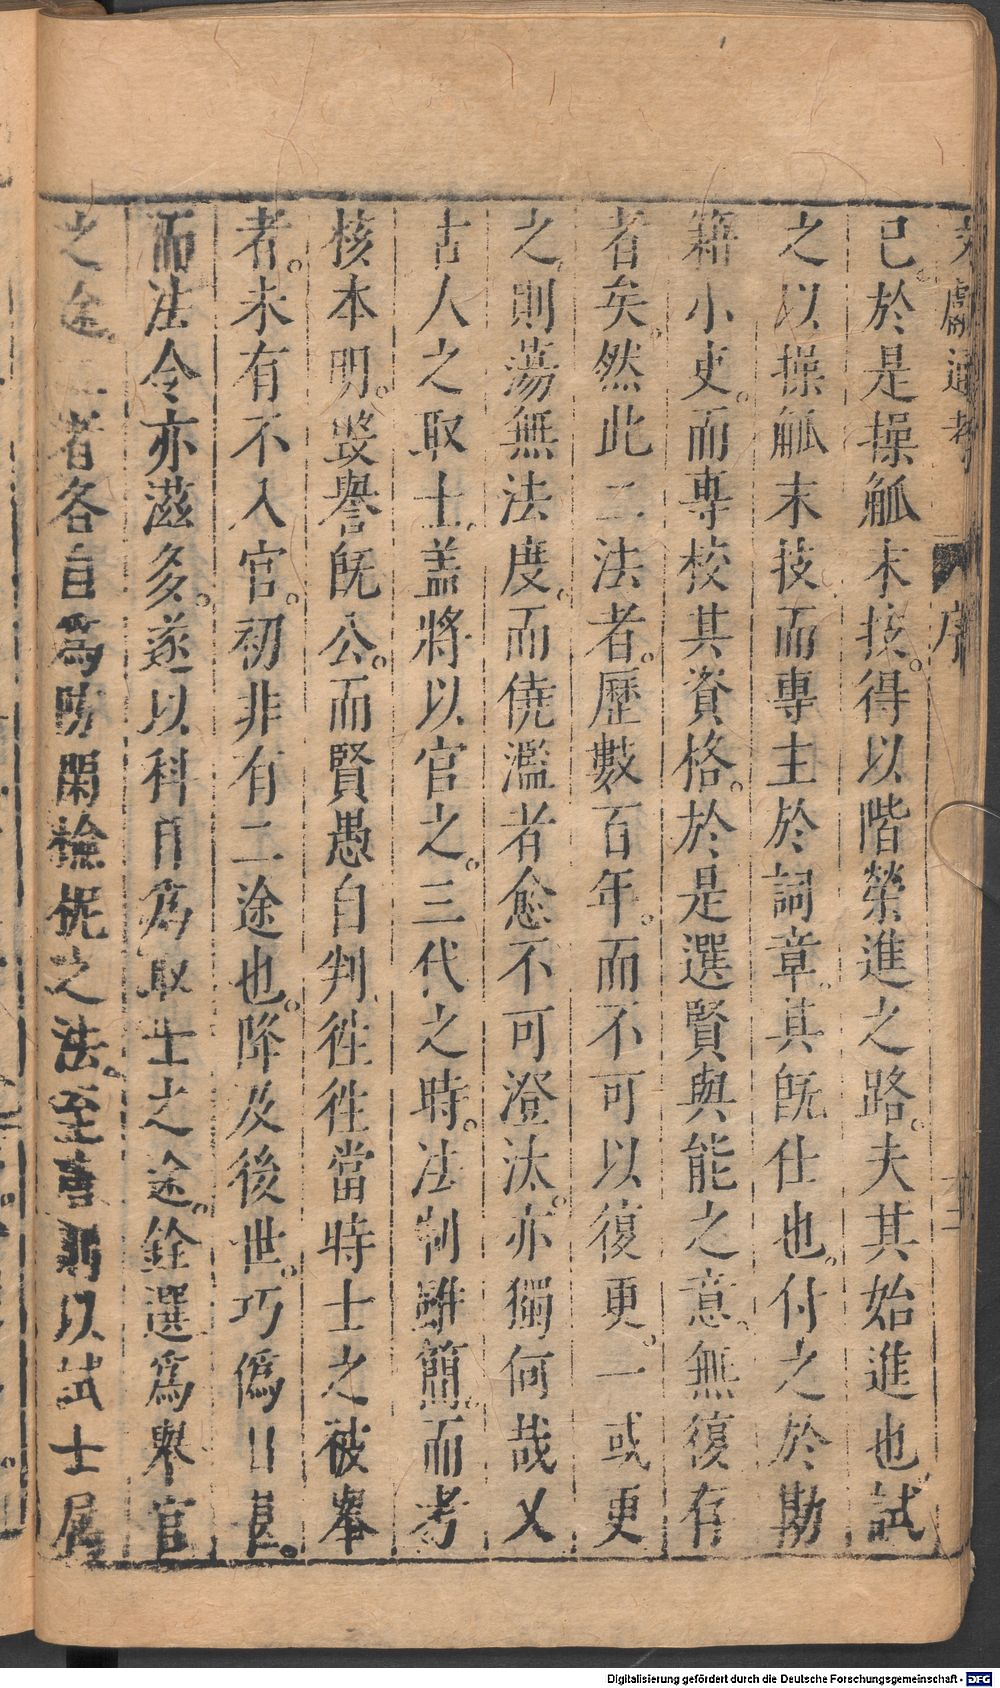 文獻通考 序
已。於是操觚末技。得以階榮進之路。夫其始進也試
之以操觚末技而專主於詞章。其旣仕也。付之於勘
籍小吏。而專校其資格。於是選賢與能之意。無復存
者矣。然此二法者。歷數百年。而不可以復更。一或更
之。則蕩無法度。而僥濫者愈不可澄汰。亦獨何哉又
古人之取士。盖將以官之。三代之時。法制雖簡。而考
核本明。毀譽旣公。而賢愚自判。徃徃當時士之被舉
者。未有不入官。初非有二途也。降及後世。巧僞日甚。
而法令亦滋多。遂以科目爲取士之途。銓選爲舉官
之途。二者各自爲防閑檢柅之法。至唐則以試士屬
Digitalisierung gefördert durch die Deutsche Forschungsgemeinschaft - DFG